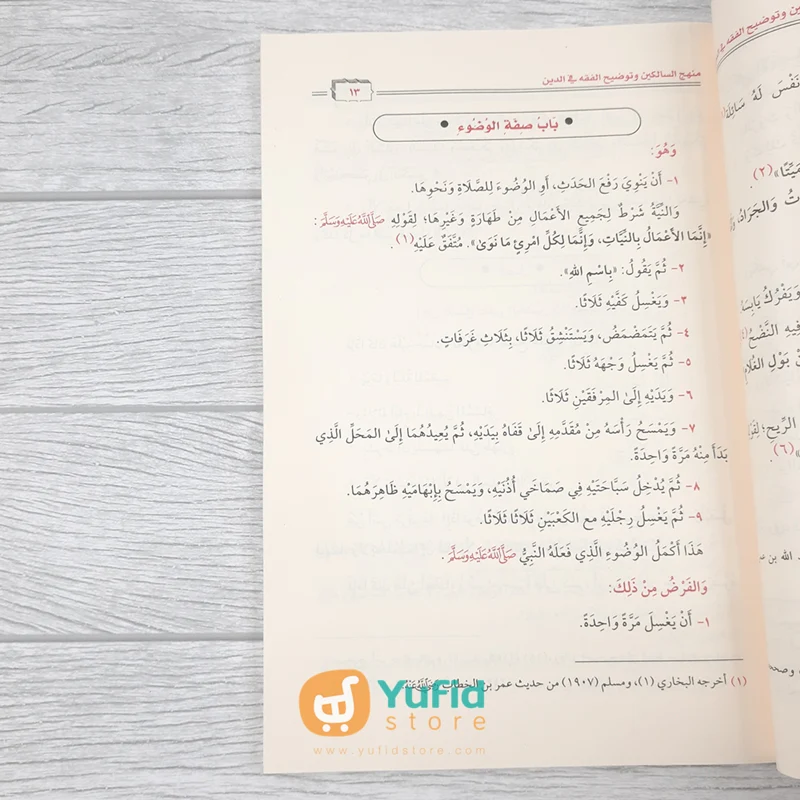 منهج السالكين وتوضيح الفقه في الدين
١٣
بَابُ صِفَةِ الوُضُوءِ
وَهُوَ:
١- أَنْ يَنْوِيَ رَفْعَ الحَدَثِ، أَوِ الوُضُوءَ لِلصَّلَاةِ وَنَحْوِهَا.
وَالنِّيَّةُ شَرْطٌ لِجَمِيعِ الأَعْمَالِ مِنْ طَهَارَةٍ وَغَيْرِهَا؛ لِقَوْلِهِ صَلَّى اللَّهُ عَلَيْهِ وَسَلَّمَ:
«إِنَّمَا الأَعْمَالُ بِالنِّيَّاتِ، وَإِنَّمَا لِكُلِّ امْرِئٍ مَا نَوَىٰ». مُتَّفَقٌ عَلَيْهِ(١).
٢- ثُمَّ يَقُولُ: «بِاسْمِ اللهِ».
٣- وَيَغْسِلُ كَفَّيْهِ ثَلَاثًا.
٤- ثُمَّ يَتَمَضْمَضُ، وَيَسْتَنْشِقُ ثَلَاثًا، بِثَلَاثِ غَرَفَاتٍ.
٥- ثُمَّ يَغْسِلُ وَجْهَهُ ثَلَاثًا.
٦- وَيَدَيْهِ إِلَىٰ المِرْفَقَيْنِ ثَلَاثًا.
٧- وَيَمْسَحُ رَأْسَهُ مِنْ مُقَدَّمِهِ إِلَىٰ قَفَاهُ بِيَدَيْهِ، ثُمَّ يُعِيدُهُمَا إِلَىٰ المَحَلِّ الَّذِي
بَدَأَ مِنْهُ مَرَّةً وَاحِدَةً.
٨- ثُمَّ يُدْخِلُ سَبَّاحَتَيْهِ فِي صَمَاخَي أُذُنَيْهِ، وَيَمْسَحُ بِإِبْهَامَيْهِ ظَاهِرَهُمَا.
٩- ثُمَّ يَغْسِلُ رِجْلَيْهِ مع الكَعْبَيْنِ ثَلَاثًا ثَلَاثًا.
هَذَا أَكْمَلُ الوُضُوءِ الَّذِي فَعَلَهُ النَّبِيُّ صَلَّى اللَّهُ عَلَيْهِ وَسَلَّمَ.
وَالفَرْضُ مِنْ ذَلِكَ:
١- أَنْ يَغْسِلَ مَرَّةً وَاحِدَةً.
(١) أخرجه البخاري (١)، ومسلم (١٩٠٧) من حديث عمر بن الخطاب
YuFid
store
www.yufidstore.com
وتوضيح الفقه في
نَفْسَ لَهُ سَائِلَة
مَيِّتًا»(٢).
وَالجَرَادُ
وَيَفْرُكُ يَابِسَ
فِيهِ النَّضْحُ
بَوْلِ الغُلَامِ
الرِّيحِ؛
(٦).
الله بن